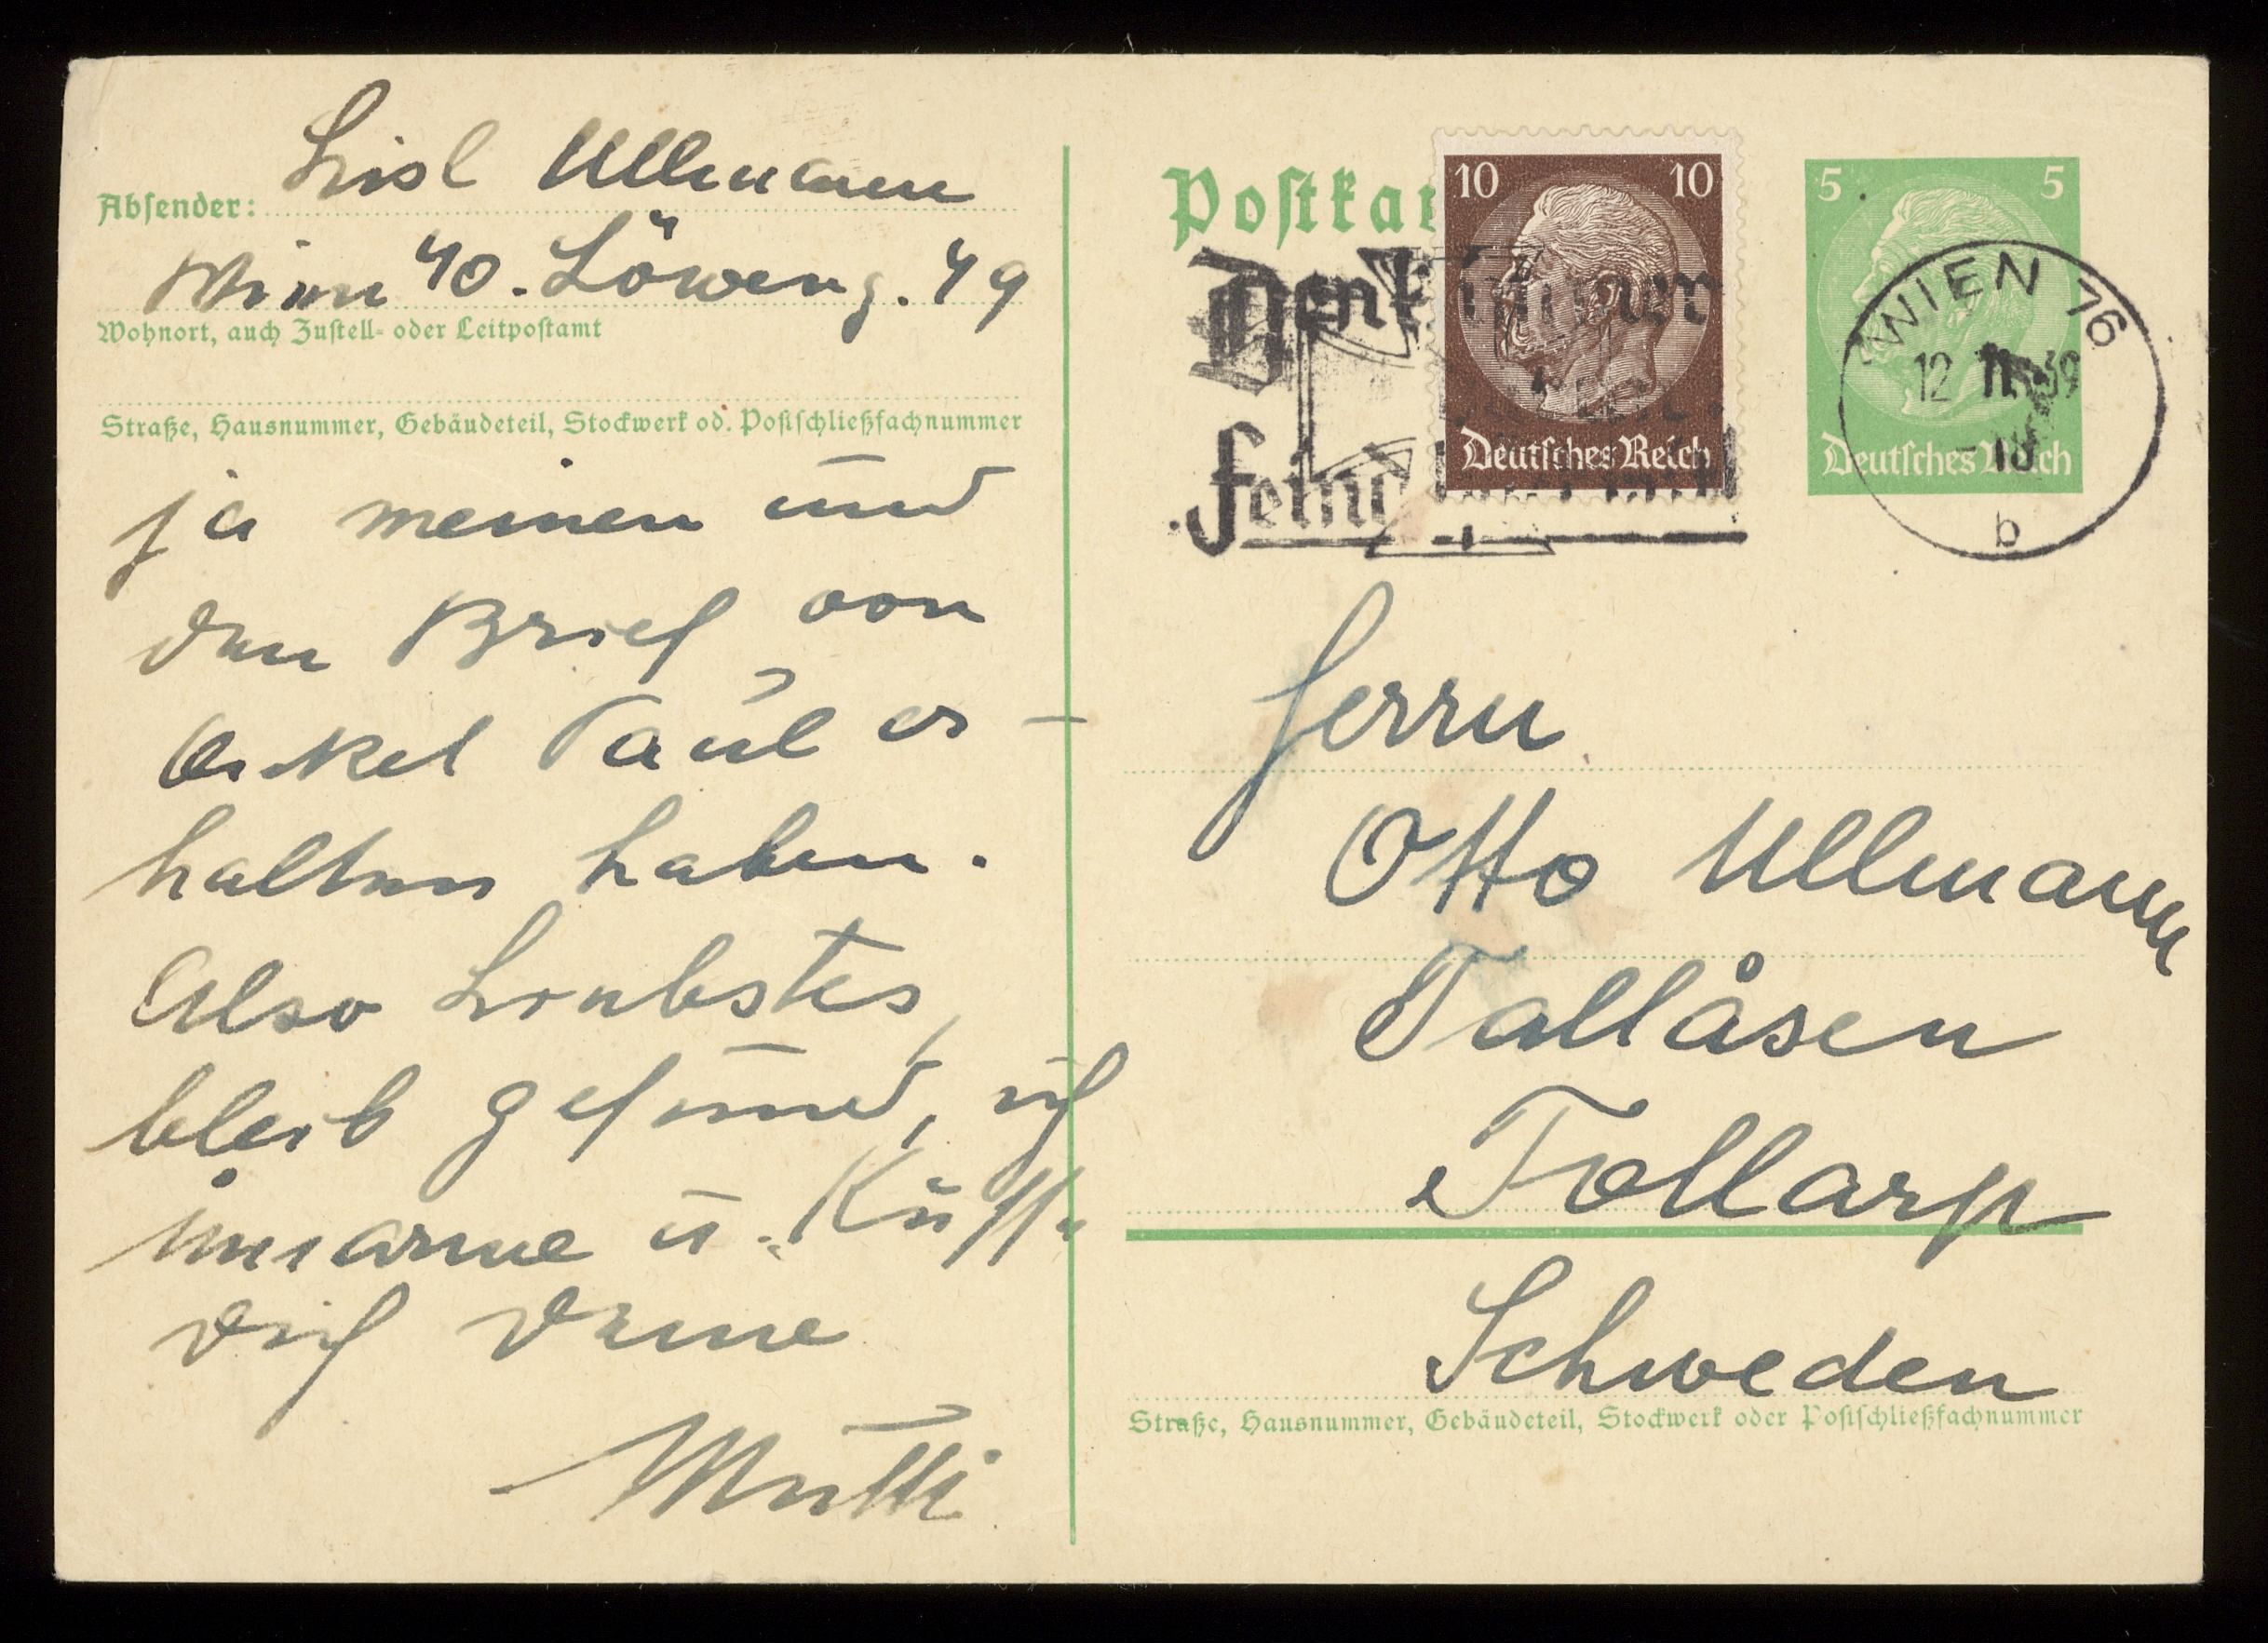 Absender: Lisl Ullmann
Wien 40. Löweng. 49
Wohnort, auch Zustell- oder Leitpostamt
Straße, Hausnummer, Gebäudeteil, Stockwerk od. Postschließfachnummer
ja meinen und
den Brief von
Onkel Paul er-
halten haben.
Also Liebstes,
bleib gesund, ich
umarme u. Küsse
dich deine
Mutti
Postkar
10 10
Deutsches Reich
5 5
Deutsches Reich
WIEN 76
12 39
b
Denk immer
Feind
Herrn
Otto Ullmann
Tallåsen
Tollarp
Schweden
Straße, Hausnummer, Gebäudeteil, Stockwerk oder Postschließfachnummer